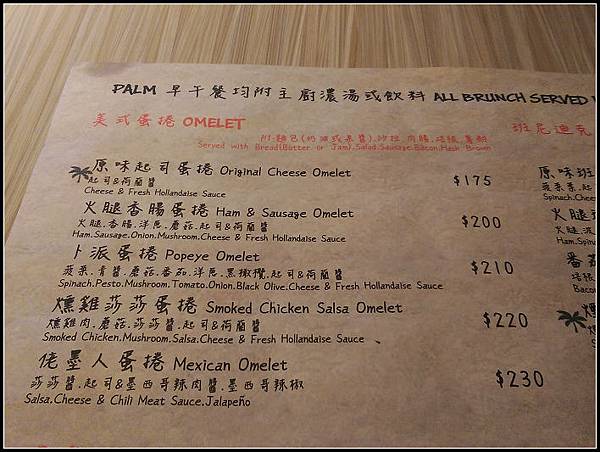 PALM 早午餐均附主廚濃湯或飲料 ALL BRUNCH SERVED
美式蛋捲 OMELET
附:麵包(奶油或果醬).沙拉.肉腸.培根.薯餅
Served with Bread(Butter or Jam).Salad.Sausage.Bacon.Hash Brown
班尼迪克
原味起司蛋捲 Original Cheese Omelet $175
起司&荷蘭醬
Cheese & Fresh Hollandaise Sauce
火腿香腸蛋捲 Ham & Sausage Omelet $200
火腿.香腸.洋蔥.蘑菇.起司&荷蘭醬
Ham.Sausage.Onion.Mushroom.Cheese & Fresh Hollandaise Sauce
卜派蛋捲 Popeye Omelet $210
菠菜.青醬.蘑菇.番茄.洋蔥.黑橄欖.起司&荷蘭醬
Spinach.Pesto.Mushroom.Tomato.Onion.Black Olive.Cheese & Fresh Hollandaise Sauce
燻雞莎莎蛋捲 Smoked Chicken Salsa Omelet $220
燻雞肉.蘑菇.莎莎醬.起司&荷蘭醬
Smoked Chicken.Mushroom.Salsa.Cheese & Fresh Hollandaise Sauce
佬墨人蛋捲 Mexican Omelet $230
莎莎醬.起司&墨西哥辣肉醬墨西哥辣椒
Salsa.Cheese & Chili Meat Sauce.Jalapeño
原味班
菠菜.起
Spinach.Chee
火腿
火腿.波
Ham.Spin
番茄
培根
Bacon
燻